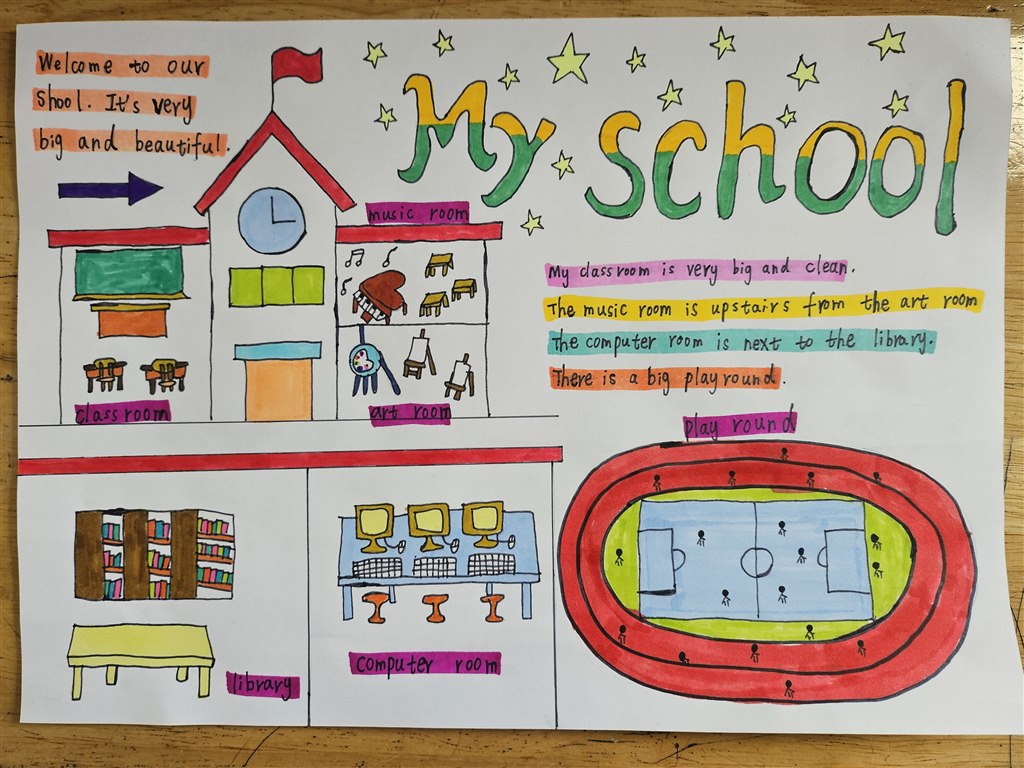 Welcome to our
shool. It's very
big and beautiful.
My school
music room
My classroom is very big and clean.
The music room is upstairs from the art room
The computer room is next to the library.
There is a big playround.
classroom
art room
play round
library
computer room